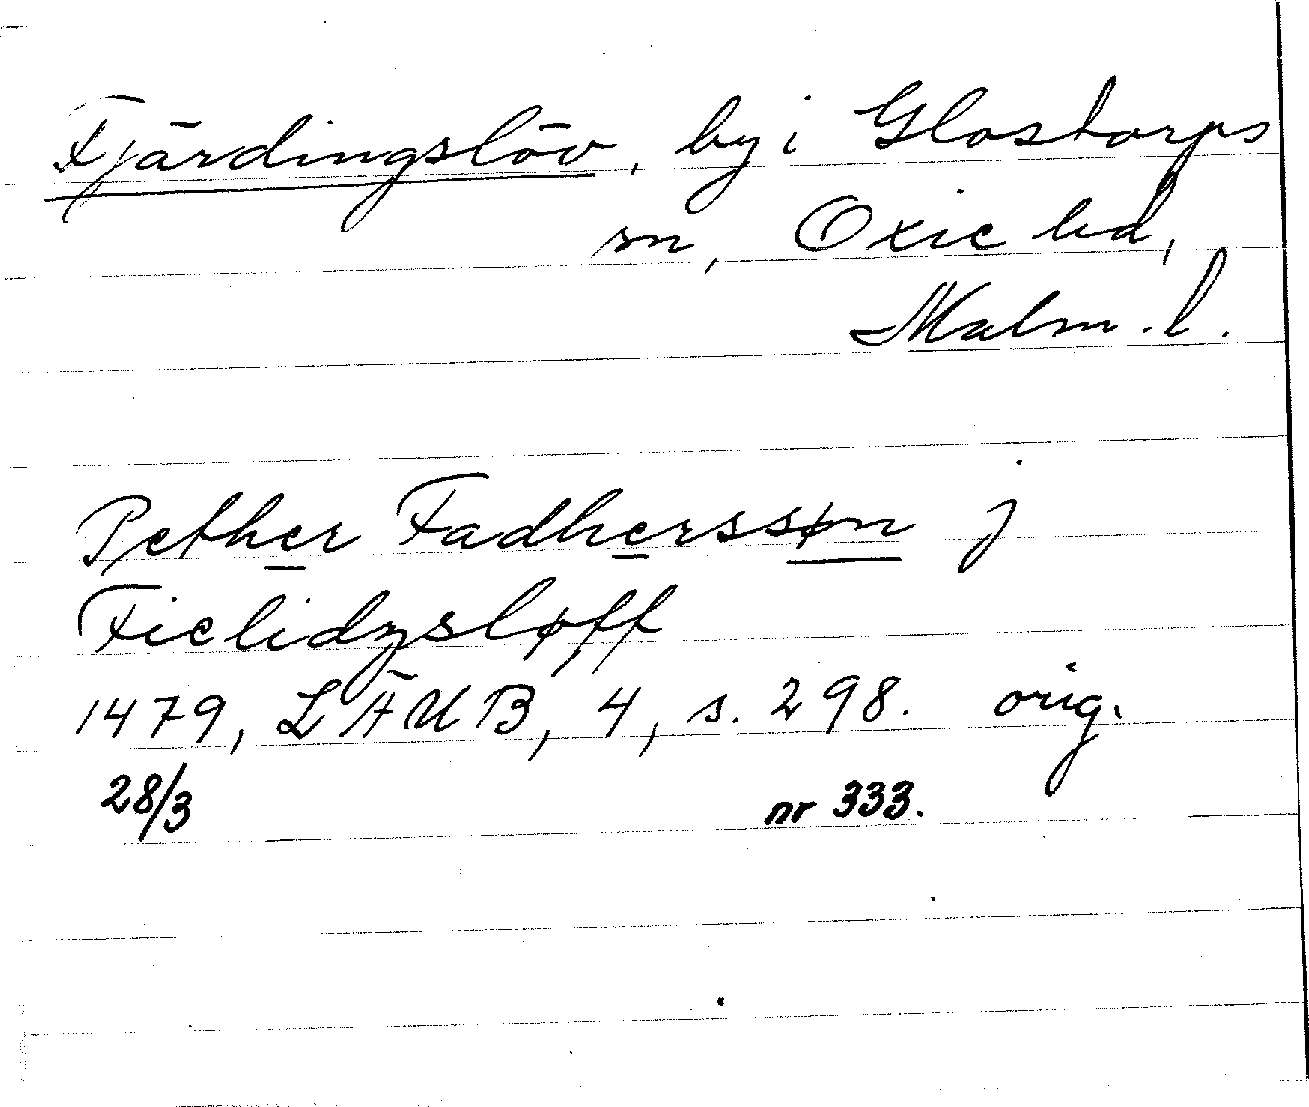 Fjärdingslöv, by i Glostorps
sn, Oxie hd,
Malm. l.
Pether Fadherssøn j
Fielidzsløff
1479, LÄUB, 4, s. 298. orig.
28/3 nr 333.